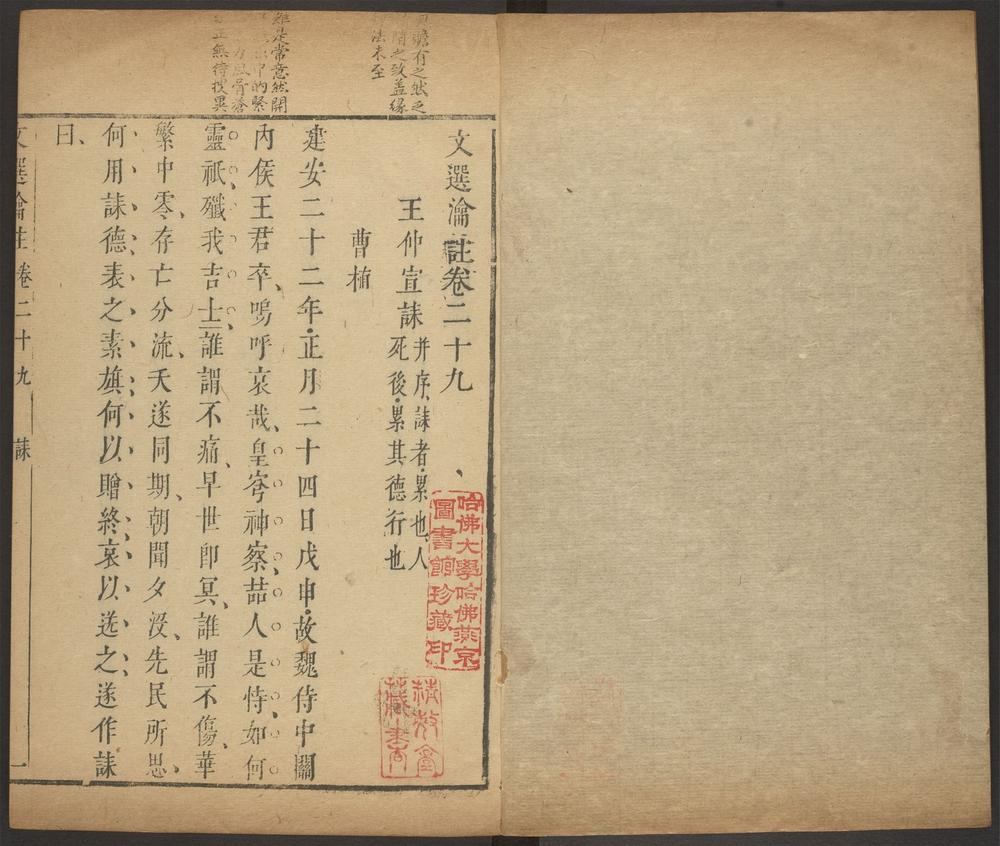 文選瀹註卷二十九
王仲宣誄并序誄者累也人
死後累其德行也
曹植
建安二十二年正月二十四日戊申故魏侍中關
內侯王君卒嗚呼哀哉皇穹神察喆人是恃如何
靈祇殲我吉士誰謂不痛早世即冥誰謂不傷華
繁中零存亡分流夭遂同期朝聞夕沒先民所思
何用誄德表之素旗何以贈終哀以送之遂作誄
曰
文選瀹註 卷二十九 誄 一
贍有之然乏
開之致蓋緣
法未至
雖是常意然開
中的緊
力風骨蒼
正無待搜異
哈佛大學哈佛燕京
圖書館珍藏印
藏書